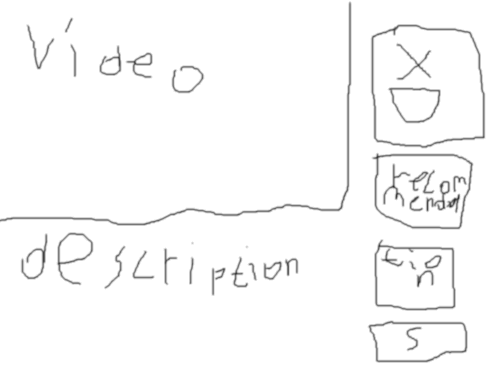 Video
description
XD
recom
menda
tio
n
s